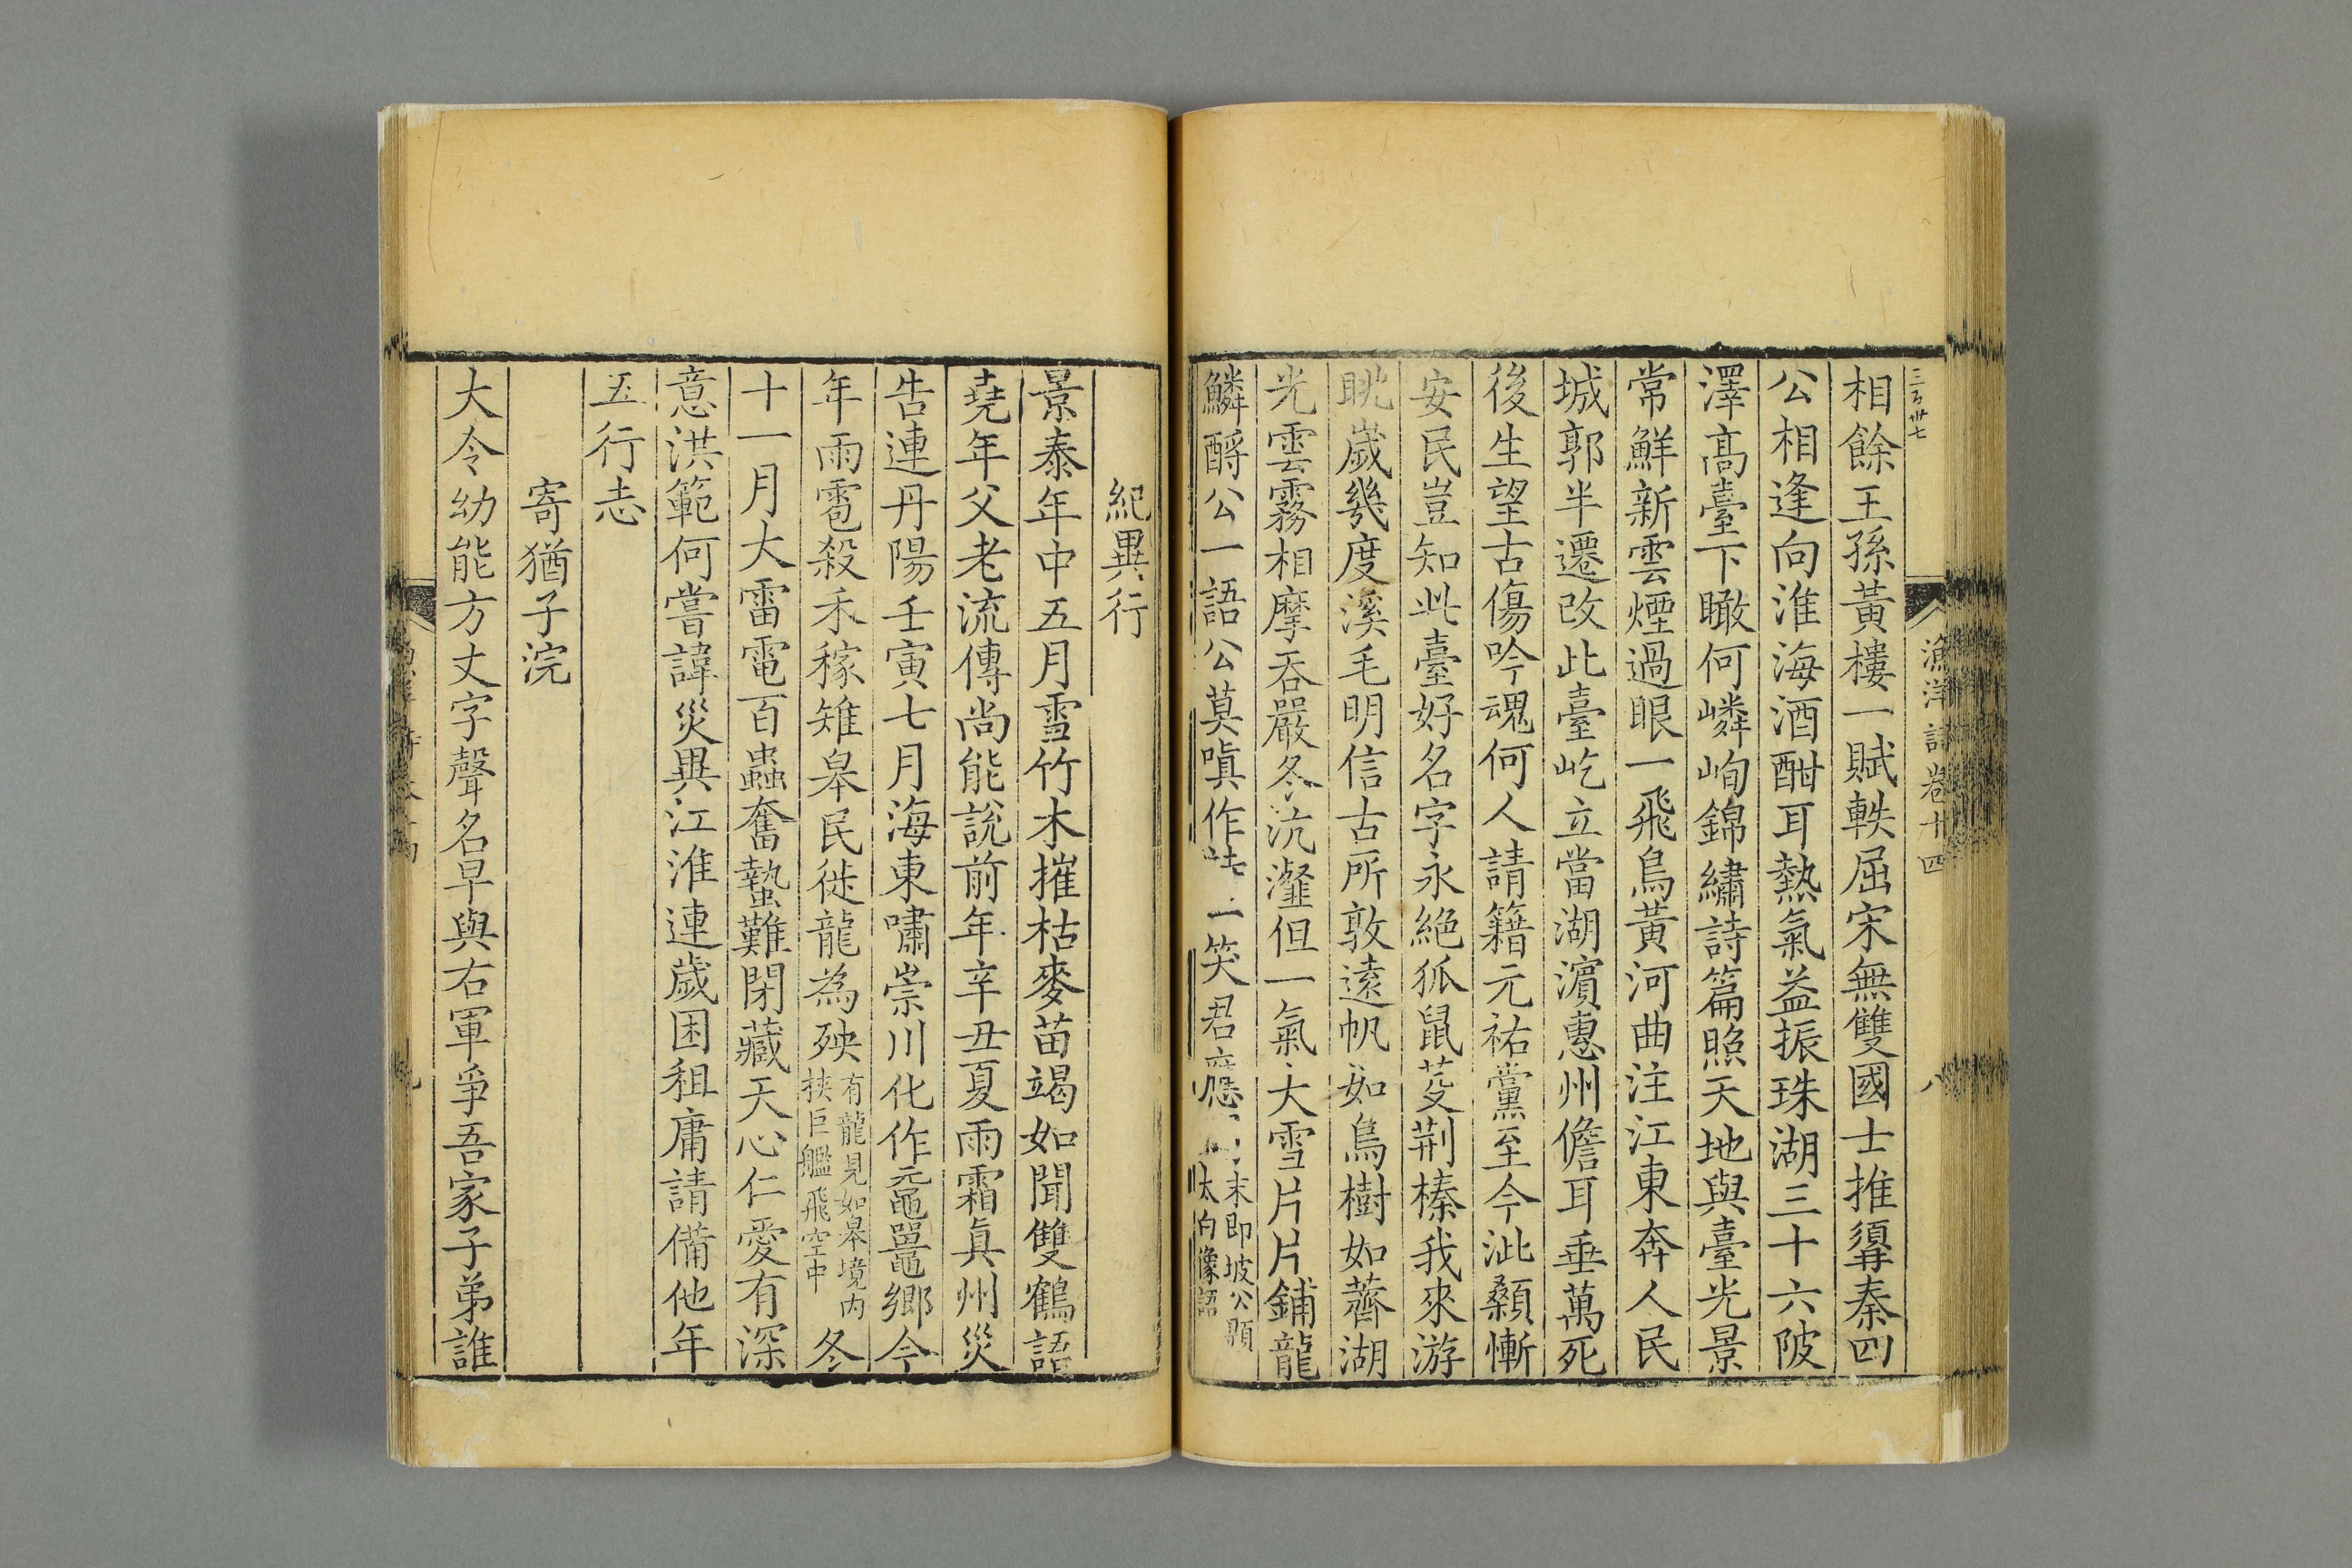 三百卅七
漁洋詩卷十四
八
相餘王孫黃樓一賦軼屈宋無雙國士推㝷秦四
公相逢向淮海酒酣耳熱氣益振珠湖三十六陂
澤高臺下瞰何嶙峋錦繡詩篇照天地與臺光景
常鮮新雲煙過眼一飛鳥黃河曲注江東奔人民
城郭半遷改此臺屹立當湖濵惠州儋耳垂萬死
後生望古傷吟魂何人請籍元祐黨至今泚顙慚
安民豈知此臺好名字永絕狐鼠芟荆榛我來游
眺歲幾度溪毛明信古所敦遠帆如鳥樹如薺湖
光雲霧相摩吞嚴冬沆瀣但一氣大雪片片鋪龍
鱗酹公一語公莫嗔作 笑君應
末即坡公題
太白像語
紀異行
景泰年中五月雪竹木摧枯麥苗竭如聞雙鶴語
堯年父老流傳尚能說前年辛丑夏雨霜眞州災
告連丹陽壬寅七月海東嘯崇川化作黿鼉鄉今
年雨雹殺禾稼雉皋民徙龍為殃
有龍見如皋境内
挾巨艦飛空中
冬
十一月大雷電百蟲奮蟄難閉藏天心仁愛有深
意洪範何嘗諱災異江淮連歲困租庸請備他年
五行志
寄猶子浣
大令幼能方丈字聲名早與右軍爭吾家子弟誰